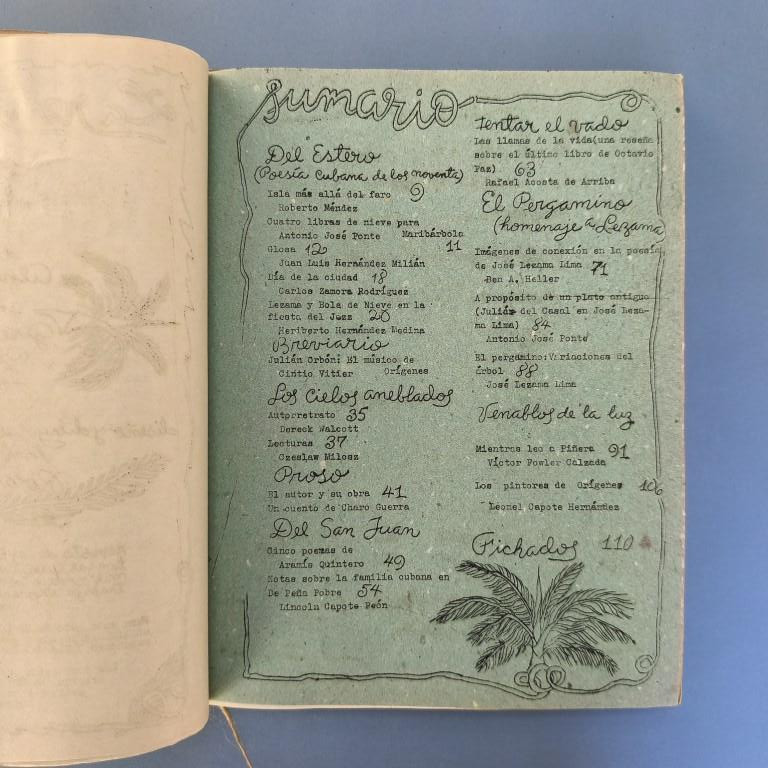 Sumario
Del Estero
(Poesía cubana de los noventa)
Isla más allá del faro 9
Roberto Méndez
Cuatro libras de nieve para
Antonio José Ponte Maribárbola
Glosa 12 11
Juan Luis Hernández Milián
Día de la ciudad 18
Carlos Zamora Rodríguez
Lezama y Bola de Nieve en la
fiesta del Jazz 20
Heriberto Hernández Medina
Breviario
Julián Orbón: El músico de
Cintio Vitier Orígenes
Los cielos aneblados
Autorretrato 35
Dereck Walcott
Lecturas 37
Czeslaw Milosz
Prosa
El autor y su obra 41
Un cuento de Charo Guerra
Del San Juan
Cinco poemas de
Aramís Quintero 49
Notas sobre la familia cubana en
De Peña Pobre 54
Lincoln Capote Peón
Tentar el vado
Las llamas de la vida(una reseña
sobre el último libro de Octavio
Paz) 63
Rafael Acosta de Arriba
El Pergamino
(homenaje a Lezama
Imágenes de conexión en la poesía
de José Lezama Lima 71
Ben A. Heller
A propósito de un plato antiguo
(Julián del Casal en José Leza-
ma Lima) 84
Antonio José Ponte
El pergamino:Variaciones del
árbol 88
José Lezama Lima
Venablos de la luz
Mientras leo a Piñera 91
Víctor Fowler Calzada
Los pintores de Orígenes 106
Leonel Capote Hernández
Fichados 110